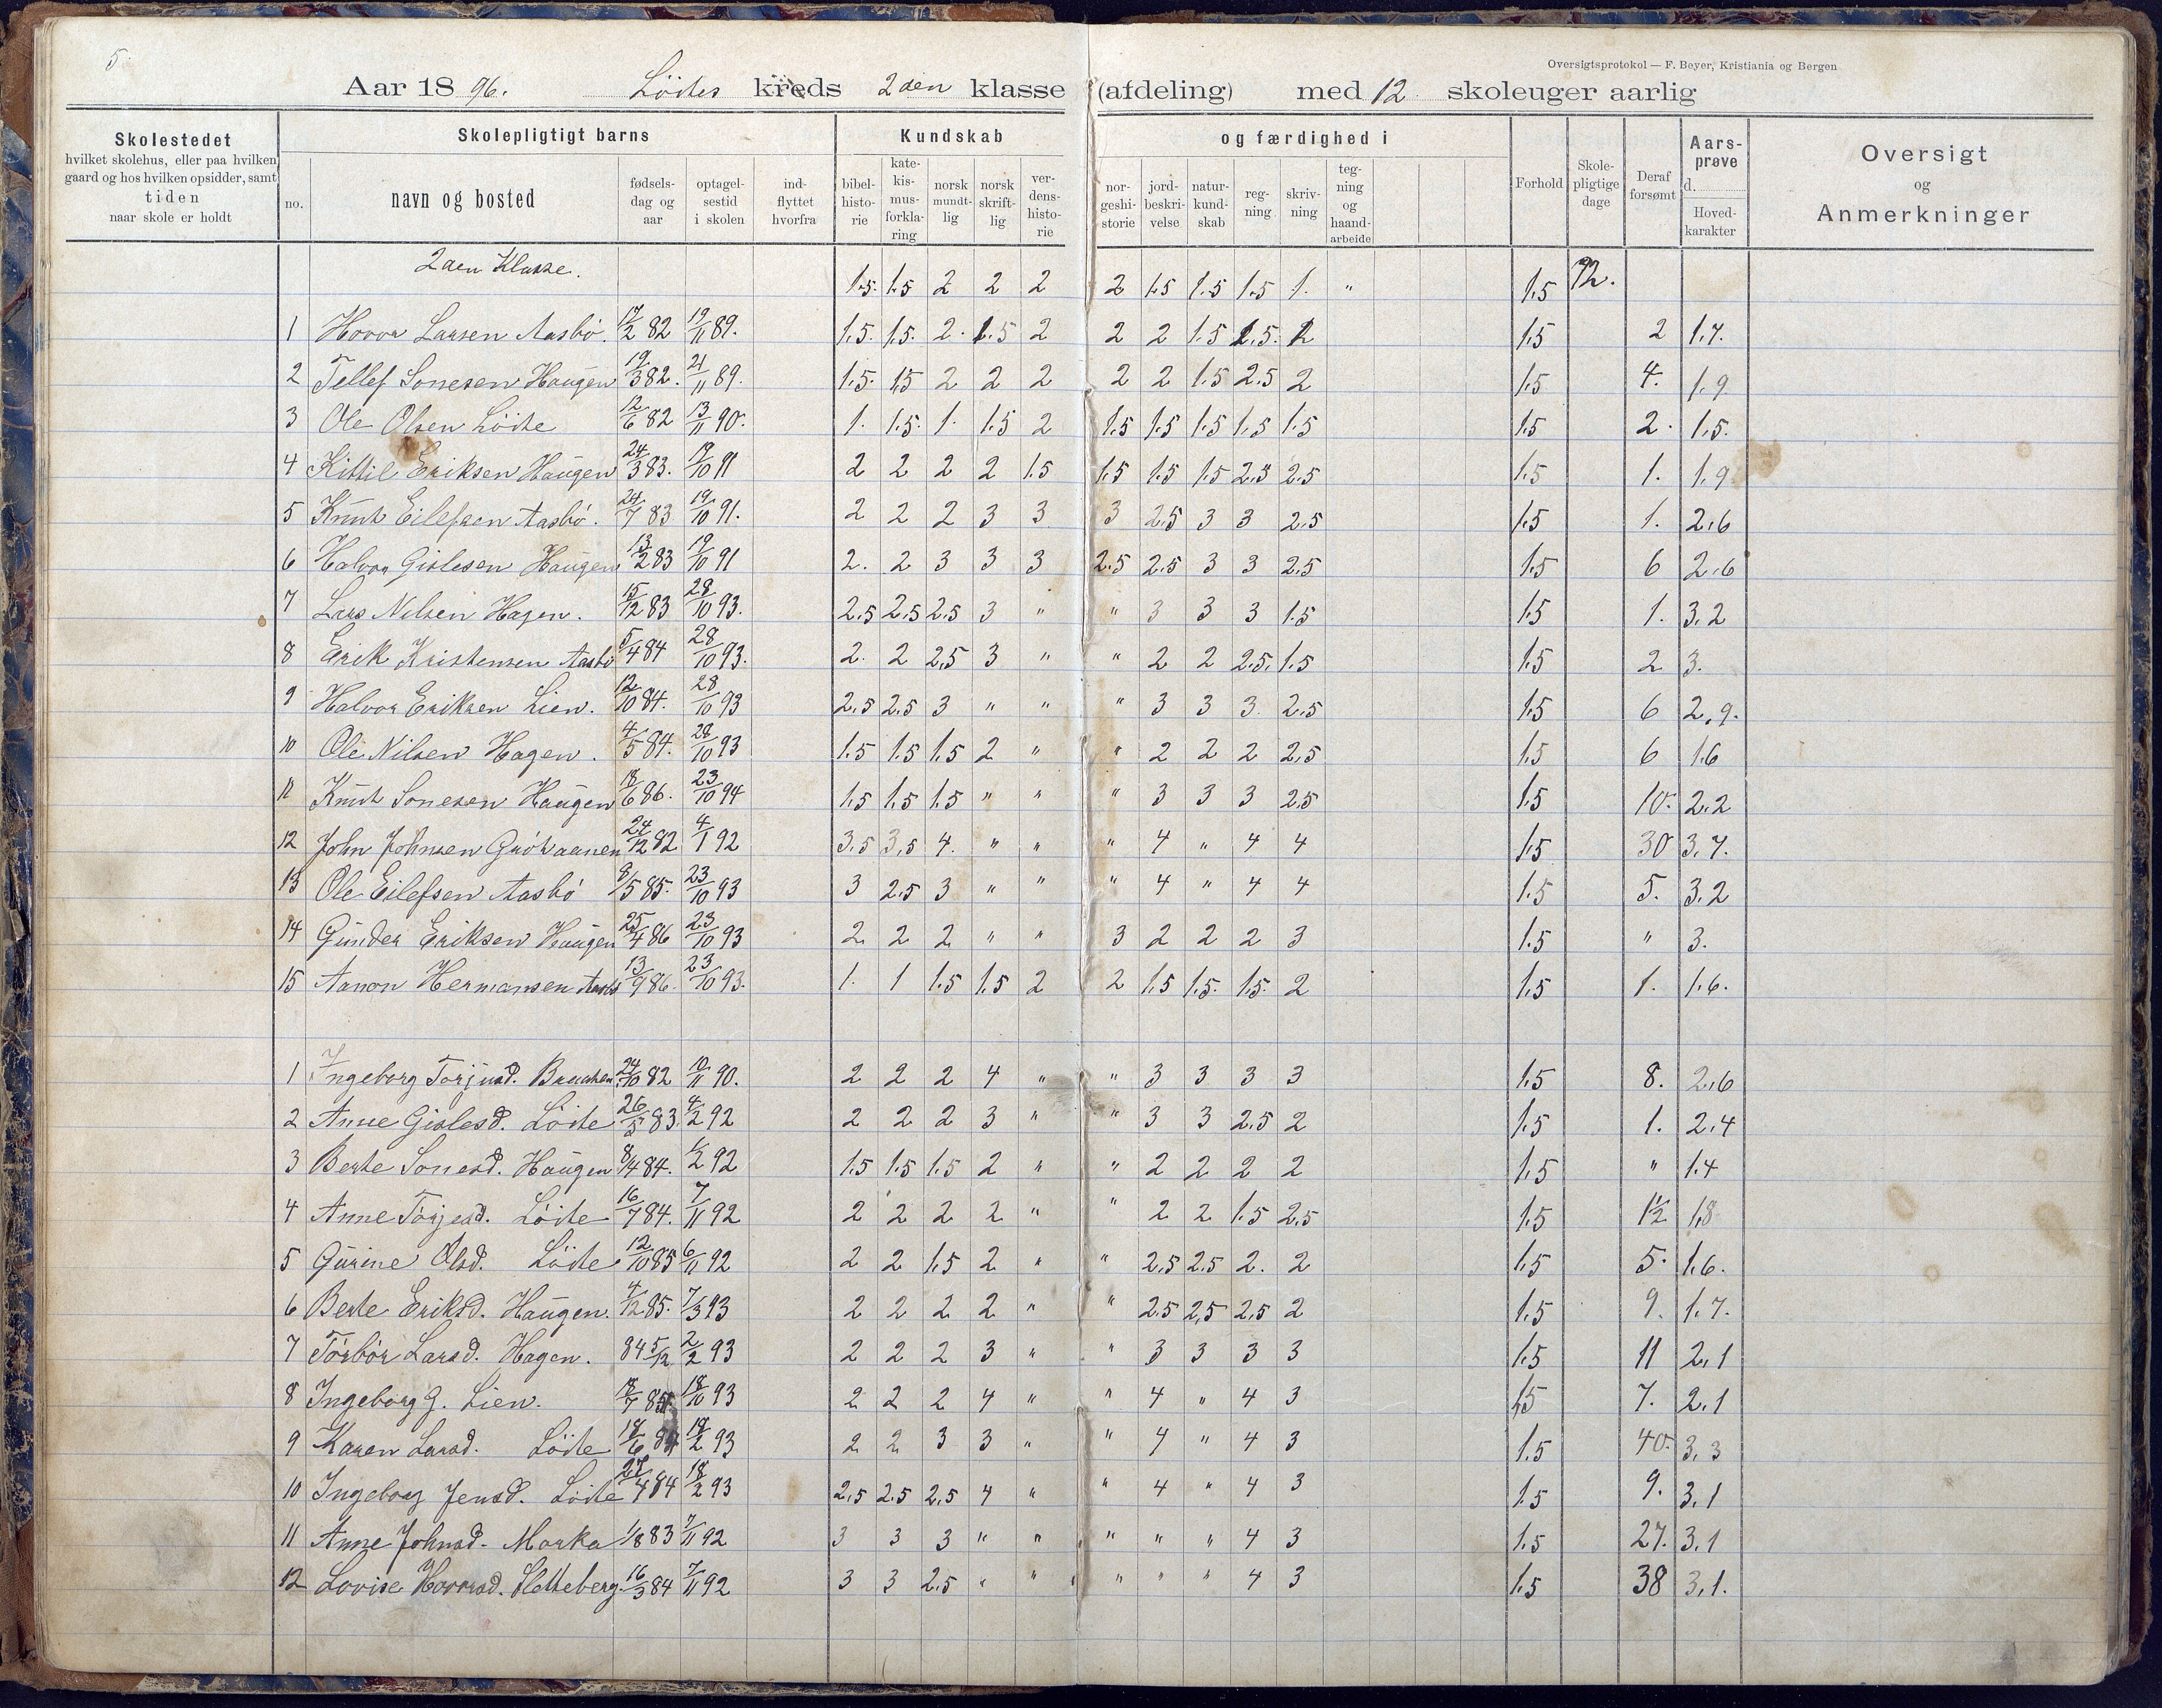 5.
Oversigtsprotokol — F. Beyer, Kristiania og Bergen
Aar 1896. Löites kreds 2den klasse (afdeling) med 12 skoleuger aarlig
Skolestedet hvilket skolehus, eller paa hvilken gaard og hos hvilken opsidder, samt tiden naar skole er holdt
Skolepligtigt barns
no. navn og bosted fødsels-dag og aar optagel-sestid i skolen ind-flyttet hvorfra
Kundskab og færdighed i
bibel-histo-rie kate-kis-mus-forkla-ring norsk mundt-lig norsk skrift-lig ver-dens-histo-rie nor-geshi-storie jord-beskri-velse natur-kund-skab reg-ning skriv-ning teg-ning og haand-arbeide
Forhold Skole-pligtige dage Deraf forsømt Aars-prøve d. Hoved-karakter
Oversigt og Anmerkninger
2den Klasse. 1.5. 1.5 2 2 2 2 1.5 1.5 1.5 1. " 1.5 72.
1 Hovor Larsen Aasbö. 17/2 82 19/11 89. 1.5. 1.5. 2. 1.5 2 2 2 1.5 2.5. 2 1.5 2 1.7.
2 Tellef Sonesen Haugen 19/3 82. 21/11 89. 1.5. 1.5 2 2 2 2 2 1.5 2.5 2 1.5 4. 1.9
3 Ole Olsen Löite 12/6 82 13/11 90. 1. 1.5. 1. 1.5 2 1.5 1.5 1.5 1.5 1.5 1.5 2. 1.5.
4 Kittil Eriksen Haugen 24/3 83. 19/10 91 2 2 2 2 1.5 1.5 1.5 1.5 2.5 2.5 1.5 1. 1.9
5 Knut Eilefsen Aasbö. 24/7 83 19/10 91. 2 2 2 3 3 3 2.5 3 3 2.5 1.5 1. 2.6
6 Halvor Gislesen Haugen 13/2 83 19/10 91 2. 2 3 3 3 2.5 2.5 3 3 2.5 1.5 6 2.6
7 Lars Nilsen Hagen. 15/12 83 28/10 93. 2.5 2.5 2.5 3 " " 3 3 3 1.5 1.5 1. 3.2
8 Erik Kristensen Aasbö 5/4 84 28/10 93. 2. 2 2.5 3 " " 2 2 2.5. 1.5 1.5 2 3.
9 Halvor Eriksen Lien. 12/10 84. 28/10 93 2.5 2.5 3 " " " 3 3 3. 2.5 1.5 6 2.9.
10 Ole Nilsen Hagen. 4/5 84. 28/10 93 1.5 1.5 1.5 2 " " 2 2 2 2.5 1.5 6 1.6
11 Knut Sonesen Haugen 18/6 86. 23/10 94 1.5 1.5 1.5 " " " 3 3 3 2.5 1.5 10. 2.2
12 John Johnsen 24/12 82 4/1 92 3.5 3.5 4. " " " 4 " 4 4 1.5 30 3.7.
13 Ole Eilefsen Aasbö 8/5 85. 23/10 93 3 2.5 3 " " " 4 " 4 4 1.5 5. 3.2
14 Gunder Eriksen Haugen 25/4 86 23/10 93 2 2 2 " " 3 2 2 2 3 1.5 " 3.
15 Aanon Hermansen Aasb 13/9 86. 23/10 93. 1. 1 1.5 1.5 2 2 1.5 1.5. 1.5. 2 1.5 1. 1.6.
1 Ingeborg Torjusd. 24/10 82 10/11 90. 2 2 2 4 " " 3 3 3 3 1.5 8. 2.6
2 Anne Gislesd. Löite 26/5 83. 4/2 92 2 2 2 3 " " 3 3 2.5 2 1.5 1. 2.4
3 Berte Sonesd. Haugen 8/4 84. 1/2 92 1.5 1.5 1.5 2 " " 2 2 2 2 1.5 " 1.4
4 Anne Torjesd. Löite 16/7 84. 7/11 92 2 2 2 2 " " 2 2 1.5 2.5 1.5 1½ 1.8
5 Gurine Olsd. Löite 12/10 85 6/11 92 2 2 1.5 2 " " 2.5 2.5 2. 2 1.5 5. 1.6.
6 Berte Eriksd. Haugen. 4/12 85. 7/3 93 2 2 2 2 " " 2.5 2.5 2.5 2 1.5 9. 1.7.
7 Torbör Larsd. Hagen. 84 5/12 2/2 93 2 2 2 3 " " 3 3 3 3 1.5 11 2.1
8 Ingeborg G. Lien. 18/7 85. 18/10 93 2 2 2 4 " " 4 " 4 3 1.5 7. 2.1
9 Karen Larsd. Löite 18/6 84 18/2 93 2 2 3 3 " " 4 " 4 3 1.5 40. 3.3
10 Ingeborg Jensd. Löite 27/4 84 18/2 93 2.5 2.5 2.5 4 " " 4 " 4 3 1.5 9. 3.1
11 Anne Johnsd. Morka 1/8 83 7/11 92 3 3 3 " " " " " 4 3 1.5 27. 3.1
12 Lovise Hovorsd. Sletteberg. 16/3 84 7/11 92 3 3 2.5 " " " " " 4 3 1.5 38 3.1.